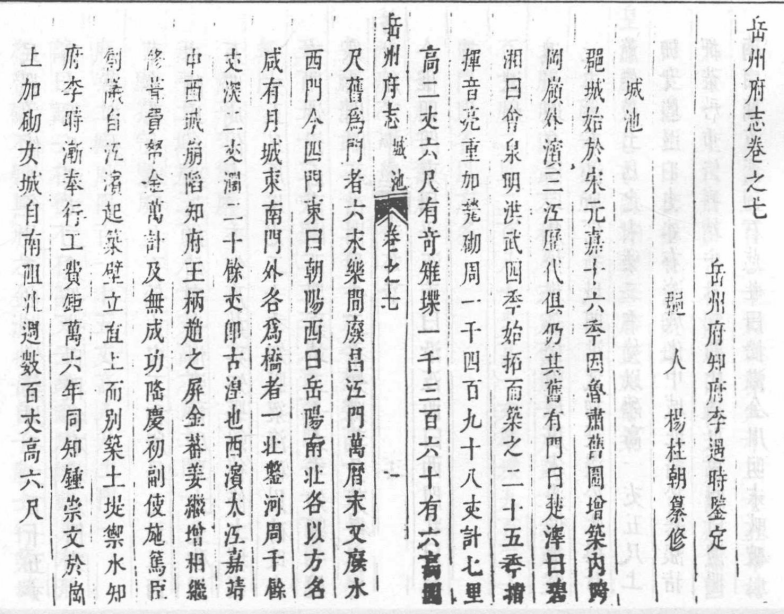 岳州府志卷之七
岳州府知府李遇時鑒定
郡人楊柱朝纂修
城池
郡城始於宋元嘉十六年因魯肅舊圃增築內跨
岡嶺外濱三江歷代俱仍其舊有門曰楚澤曰碧
湘曰會泉明洪武四年始拓而築之二十五年指
揮音亮重加甃砌周一千四百九十八丈計七里
高二丈六尺有竒雉堞一千三百六十有六
岳州府志 城池 卷之七 一
尺舊爲門者六永樂間廢昌江門萬曆末又廢水
西門今四門東曰朝陽西曰岳陽南北各以方名
咸有月城東南門外各爲橋者一北鑿河周千餘
丈深二丈濶二十餘丈卽古湟也西濱大江嘉靖
中西城崩陷知府王柄趙之屏金蕃姜繼增相繼
修葺費帑金萬計及無成功隆慶初副使施篤臣
創議自江濱起築壁立直上而別築土堤禦水知
府李時漸奉行工費鉅萬六年同知鍾崇文於崗
上加砌女城自南徂北週數百丈高六尺